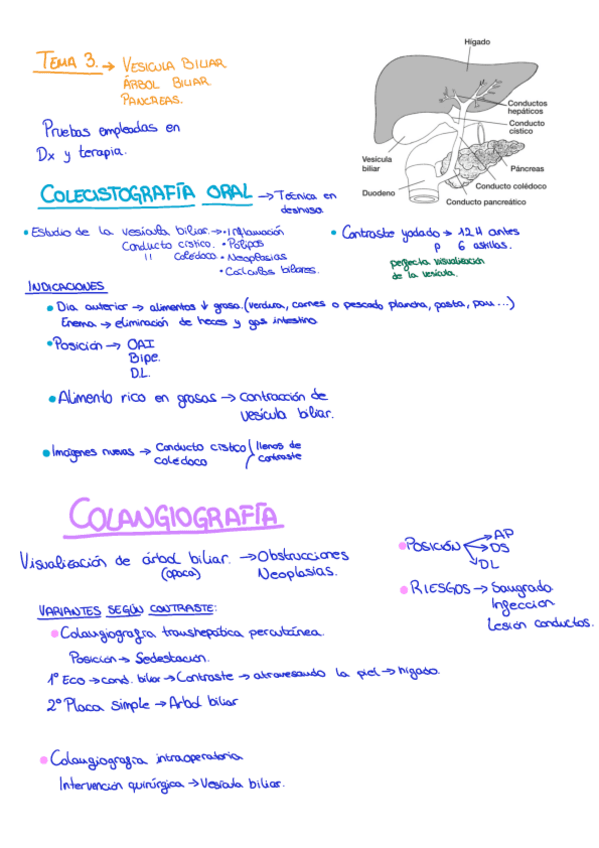 TEMA 3. → VESICULA BILIAR
ÁRBOL BILIAR
PANCREAS.
Pruebas empleadas en
Dx y terapia.
Hígado
Conductos
hepáticos
Conducto
cístico
Vesícula
biliar
Páncreas
Duodeno
Conducto colédoco
Conducto pancreático
COLECISTOGRAFÍA ORAL → Técnica en
deshuso.
• Estudio de la vesícula biliar. → • Inflamación
Conducto cístico. • Pólipos
" colédoco • Neoplasias
• Calculos biliares.
• Contraste yodado → 12H antes
p 6 astillas.
perfecta visualización
de la vesícula.
INDICACIONES
• Dia anterior → alimentos ↓ grasa. (verdura, carnes o pescado plancha, pasta, pan...)
Enema → eliminación de heces y gas intestino
• Posición → OAI
Bipe.
D.L.
• Alimento rico en grasas → contracción de
vesícula biliar.
• Imágenes nuevas → Conducto cístico llenos de
colédoco contraste
COLANGIOGRAFÍA
Visualización de árbol biliar. → Obstrucciones
(opaca) Neoplasias.
• POSICIÓN → AP
→ DS
→ DL
• RIESGOS → Sangrado
Infeccion
Lesión conductos.
VARIANTES SEGÚN CONTRASTE:
• Colangiografia transhepática percutánea.
Posición → Sedestación.
1º Eco → cond. biliar → Contraste → atravesando la piel → hígado.
2º Placa simple → Arbol biliar
• Colangiografia intraoperatoria
Intervención quirúrgica → Vesícula biliar.